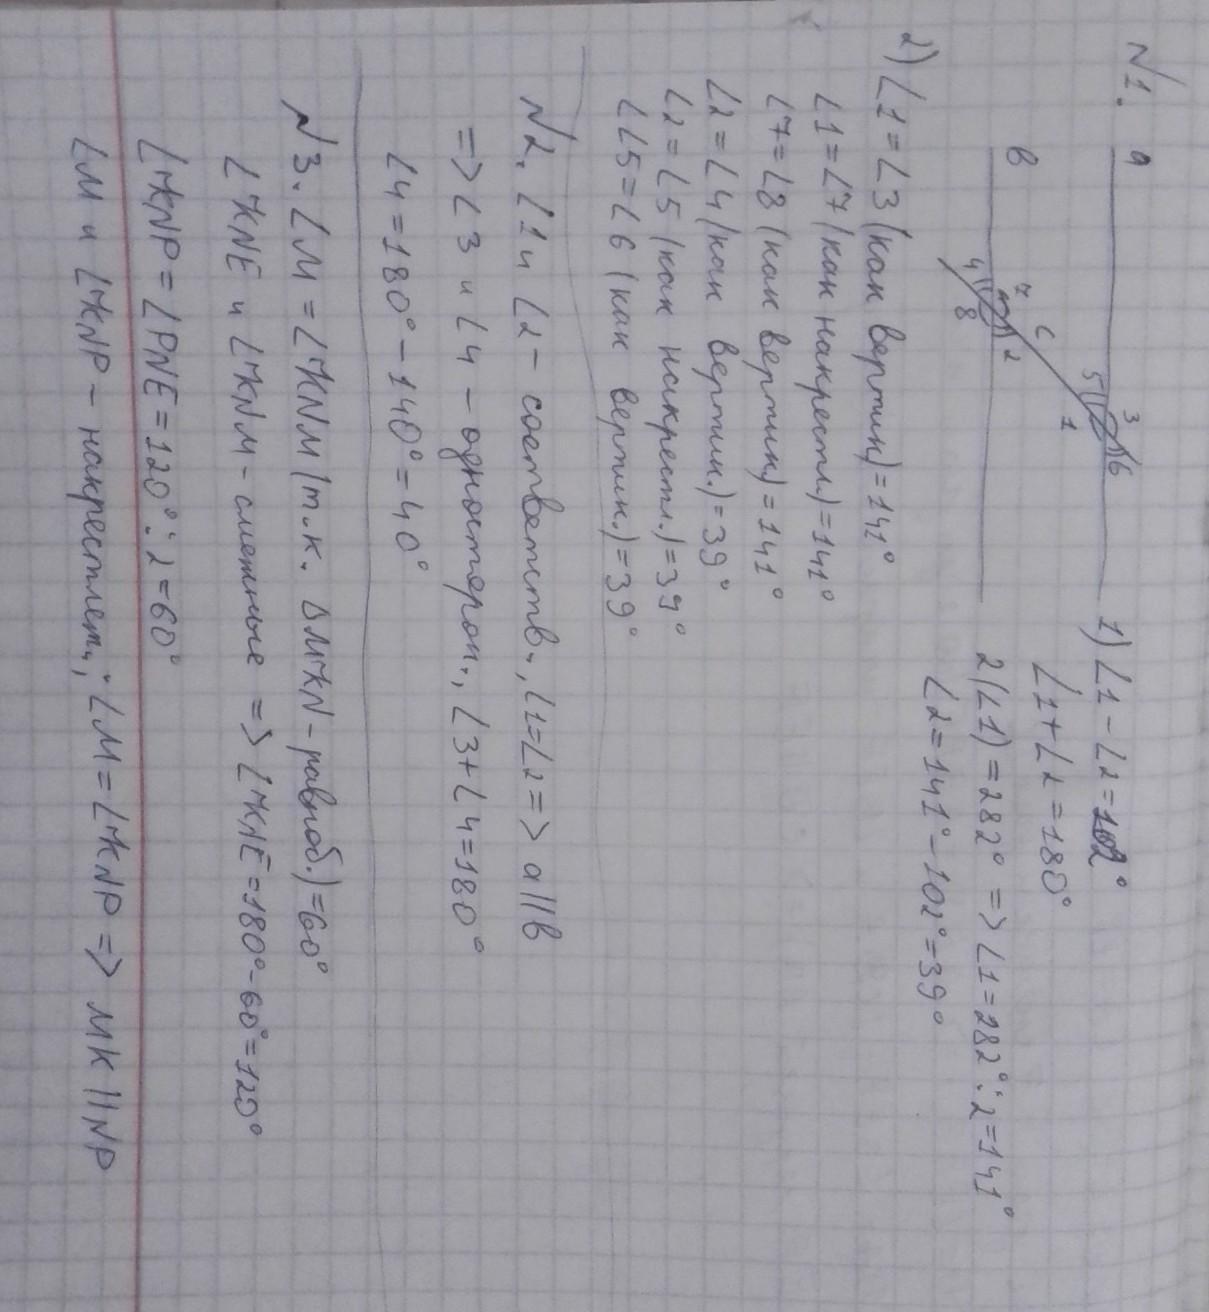 N1.
a
b
c
3
6
5
1
7
2
4
8
1) ∠1-∠2=102°
∠1+∠2=180°
2(∠1)=282° => ∠1=282°:2=141°
∠2=141°-102°=39°
2) ∠1=∠3 (как вертик)=141°
∠1=∠7 (как накрестл)=141°
∠7=∠8 (как вертик)=141°
∠2=∠4 (как вертик.)=39°
∠2=∠5 (как накрестл.)=39°
∠∠5=∠6 (как вертик.)=39°
N2. ∠1 и ∠2 - соответств., ∠1=∠2 => a||b
=> ∠3 и ∠4 - односторон., ∠3+∠4=180°
∠4=180°-140°=40°
N3. ∠M=∠KNM (т.к. ΔMKN-равноб.)=60°
∠KNE и ∠KNM - смежные => ∠KNE=180°-60°=120°
∠KNP=∠PNE=120°:2=60°
∠M и ∠KNP - накрестлеж.; ∠M=∠KNP => MK||NP